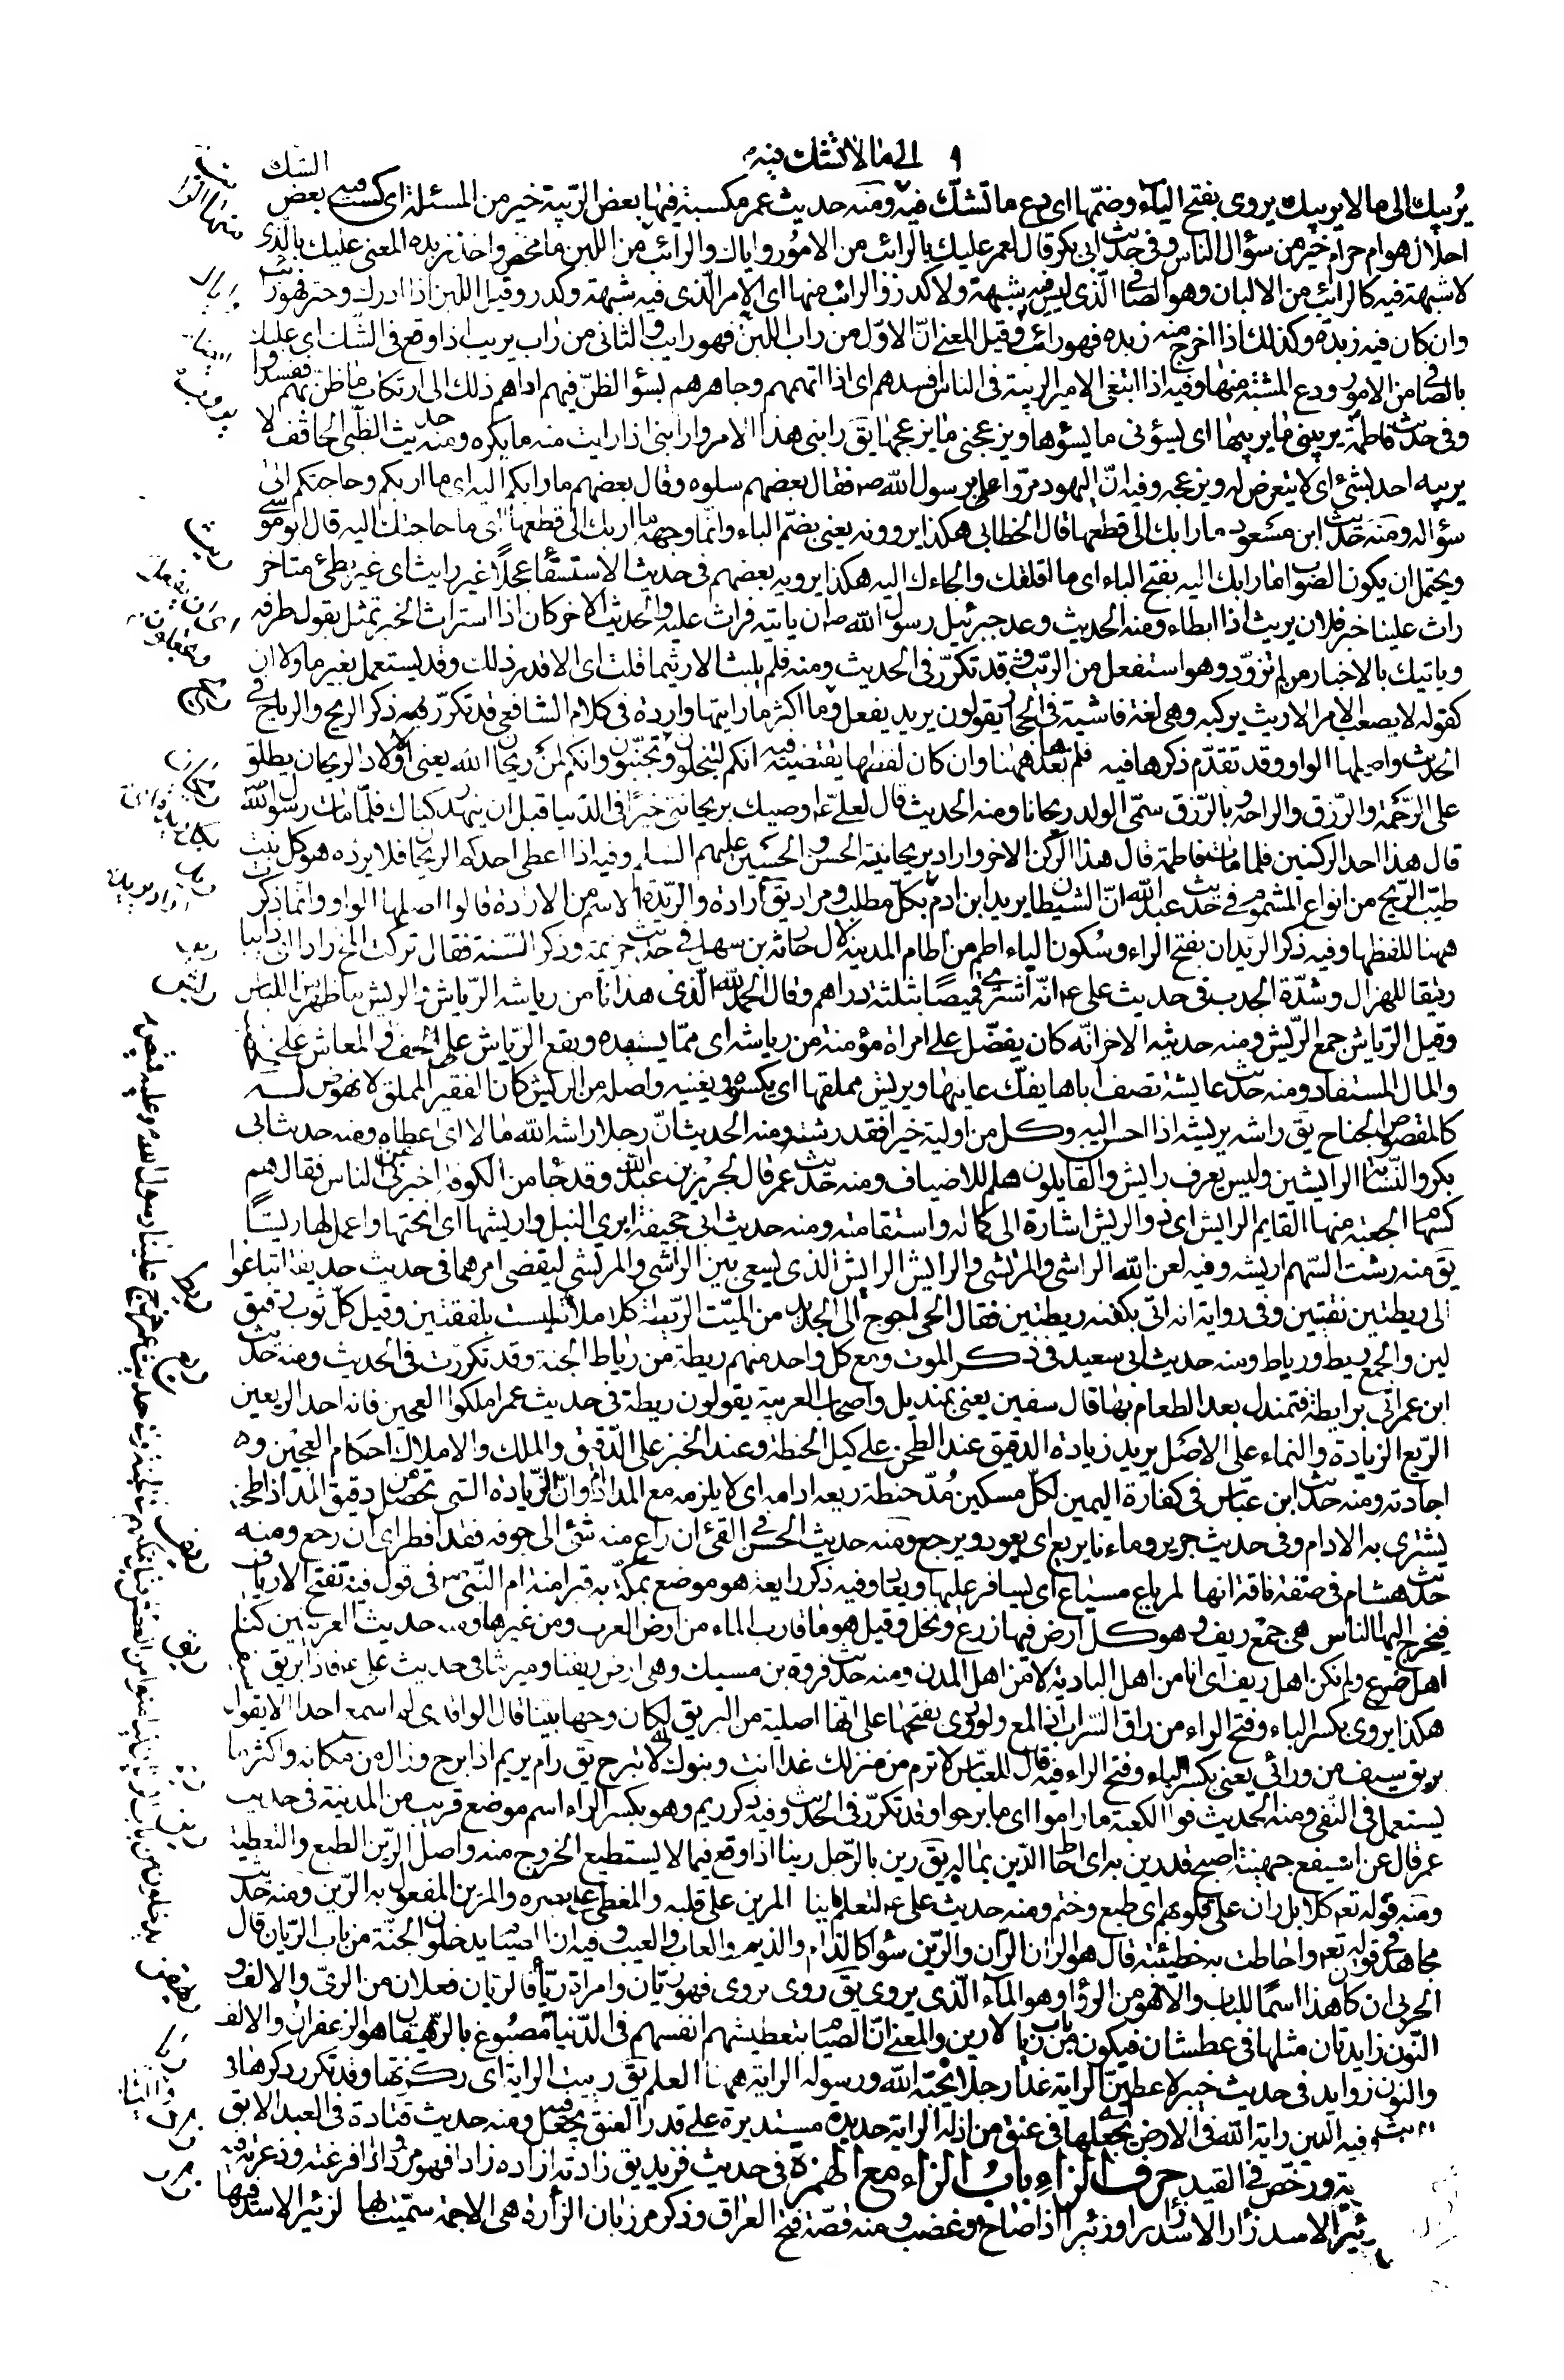 الى ما لا تشك فيه
يُريبك الى ما لا يريبك يروى بفتح الياء وضمّها اى دع ما تشكّ فيه ومنه حديث عمر مكسبة فيها بعض الرّيبة خير من المسئلة اى كسب فيه بعض الشك
احلال هو ام حرام خير من سؤال الناس وفى حديث ابى بكر قال لعمر عليك بالرائب من الامور واياك والرائب من اللبن ما مخض واخذ زبده المعنى عليك بالّذى
لا شبهة فيه كالرائب من الالبان وهو الصافى الّذى ليس فيه شبهة ولا كدر والرائب منها اى الامر الّذى فيه شبهة وكدر وقيل اللبن اذا ادرك وخثر فهو رائب
وان كان فيه زبده وكذلك اذا اخرج منه زبده فهو رائب وقيل المعنى انّ الاوّل من راب اللبن فهو رايب والثانى من راب يريب اذا وقع فى الشّك اى عليك
بالصافى من الامور ودع المشتبه منها وفيه اذا ابتغى الامير الريبة فى الناس افسدهم اى اذا اتهمهم وجاهرهم بسؤ الظنّ فيهم اداهم ذلك الى ارتكاب ما ظنّ بهم ففسدوا
وفى حديث فاطمة يريبنى ما يريبها اى يسؤنى ما يسؤها ويزعجنى ما يزعجها يق رابنى هذا الامر وارابنى اذا رايت منه ما يكره ومنه حديث الظّبى الحاقف لا
يريبه احد بشئ اى لا يتعرض له ويزعجه وفيه انّ اليهود مرّوا على رسول الله ص فقال بعضهم سلوه وقال بعضهم ما رابكم اليه اى ما اربكم وحاجتكم الى
سؤاله ومنه حديث ابن مسعود ما رابك الى قطعها قال الخطابى هكذا يروونه يعنى بضمّ الباء وانّما وجهه ما اربك الى قطعها اى ما حاجتك اليه قال ابو موسى
ويحتمل ان يكون الصّواب ما رابك اليه بفتح الباء اى ما اقلقك والجاءك اليه هكذا يرويه بعضهم فى حديث الاستسقا عجلاً غير رايث اى غير بطئ متاخر
راث علينا خبر فلان يريث اذا ابطاء ومنه الحديث وعد جبرئيل رسول الله ص ان ياتيه فراث عليه والحديث الاخر كان اذا استراث الخبر تمثل بقول طرفه
وياتيك بالاخبار من لم تزوّد وهو استفعل من الريث وقد تكرّر فى الحديث ومنه فلم يلبث الا ريثما قلت اى الا قدر ذلك وقد يستعمل بغير ما ولا ان
كقوله لا يصعب الامر الا ريث يركبه وهى لغة فاشية فى الحجاز يقولون يريد يفعل وما اكثر ما رايتها واردة فى كلام الشافعى قد تكرر فيه ذكر الريح والرياح فى
الحديث واصلها الواو وقد تقدّم ذكرها فيه فلم نعدها ههنا وان كان لفظها يقتضيه فيه انكم لتبخلون وتجبّنون وانكم لمن ريحان الله يعنى الاولاد الريحان يطلق
على الرّحمة والرّزق والراحة وبالرّزق سمّى الولد ريحانا ومنه الحديث قال لعلى ع اوصيك بريحانتى خيراً فى الدنيا قبل ان ينهد ركناك فلمّا مات رسول الله
قال هذا احد الركنين فلما ماتت فاطمة قال هذا الركن الاخر واراد بريحانتيه الحسن والحسين عليهم السلم وفيه اذا اعطى احدكم الريحان فلا يرده هو كل نبت
طيّب الريح من انواع المشموم فى حديث عبد الله انّ الشيطان يريد ابن ادم بكلّ مطلب ومراد يق اراده والريّدة الاسم من الارادة قالوا اصلها الواو وانّما ذكرت
ههنا للفظها وفيه ذكر الريدان بفتح الراء وسُكون الياء اطم من اطام المدينة لال حارثة بن سهل فى حديث خزيمة وذكر السّنة فقال تركت المخ رارا اى ذايبا
رقيقا للهزال وشدّة الجدب فى حديث على ع انّه اشترى قميصًا بثلثة دراهم وقال الحمد لله الّذى هذا من رياشه الرّياش والريش ما ظهر من اللباس
وقيل الرّياش جمع الرّيش ومنه حديثه الاخر انّه كان يفضّل على امراة مؤمنة من رياشه اى ممّا يستفيده ويقع الرّياش على الخصب والمعاش
والمال المستفاد ومنه حديث عايشة تصف اباها يفكّ عانيها ويريش مملقها اى يكسوه ويغنيه واصله من الريش كان الفقير المملق لا نهوض له
كالمقصوص الجناح يق راشه يريشه اذا احسن اليه وكل من اوليته خيرا فقد رشته ومنه الحديث انّ رجلا راشه الله مالا اى اعطاه ومنه حديث ابى
بكر والنّسّابة الرايشين وليس يعرف رايش والقايلون هلم للاضياف ومنه حديث عمر قال لجرير بن عبد الله وقد جاء من الكوفة اخبرنى عن الناس فقال هم
كسهام الجعبة منها القايم الرايش اى ذو الريش اشارة الى كماله واستقامته ومنه حديث ابى جحيفة ابرى النبل واريشها اى انحتها واعمل لها ريشاً
يق منه رشت السّهم اريشه وفيه لعن الله الراشى والمرتشى والرايش الرايش الذى يسعى بين الراشى والمرتشى ليقضى امرهما فى حديث حذيفة ابتاعوا
لى ريطتين نقيتين وفى رواية انه اتى بكفنه ريطتين فقال الحى احوج الى الجديد من الميت الريطة كل ملائة ليست بلفقتين وقيل كلّ ثوب رقيق
لين والجمع ريط ورياط ومنه حديث ابى سعيد فى ذكر الموت ومع كل واحد منهم ريطة من رياط الجنة وقد تكررت فى الحديث ومنه حديث
ابن عمر اتى برايطة فتمندل بعد الطعام بها قال سفين يعنى بمنديل واصحاب العربية يقولون ريطة فى حديث عمر املكوا العجين فانه احد الريعين
الرّيع الزيادة والنماء على الاصل يريد زيادة الدقيق عند الطحن على كيل الحنطة وعند الخبز على الدّقيق والملك والاملاك احكام العجين و
اجادته ومنه حديث ابن عبّاس فى كفارة اليمين لكلّ مسكين مُدّ حنطة ريعه ادامه اى لا يلزمه مع المد ادام وانّ الزّيادة التى تحصل من دقيق المد اذا طحن
يشترى به الادام وفى حديث جرير وماءنا يريع اى يعود ويرجع ومنه حديث الحسن فى القئ ان راع منه شئ الى جوفه فقد افطر اى ان رجع ومنه
حديث هشام فى صفة ناقة انها لمرياع مسياع اى يسافر عليها ويعاد وفيه ذكر رايعة هو موضع بمكّة به قبر امنة ام النّبىّ فى قول فيه تفتح الارياف
فيخرج اليها الناس هى جمع ريف وهو كل ارض فيها زرع ونخل وقيل هو ما قارب الماء من ارض العرب ومن غيرها ومنه حديث العرنيين كنا
اهل ضرع ولم نكن اهل ريف اى انا من اهل البادية لا من اهل المدن ومنه حديث فروة بن مسيك وهى ارض ريفنا وميرتنا فى حديث على ع فاذا بريق
هكذا يروى بكسر الباء وفتح الراء من راق السّراب اذا لمع ولو روى بفتحها على انّها اصلية من البريق لكان وجها بينا قال الواقدى لم اسمع احدا الا يقول
بريق سيف من ورائى يعنى بكسر الباء وفتح الراء فيه قال للعبّاس لا ترم من منزلك غدا انت وبنوك اى لا تبرح يق رام يريم اذا برح وزال من مكانه واكثر ما
يستعمل فى النفى ومنه الحديث فوالكعبة ما راموا اى ما برحوا وقد تكرّر فى الحديث وفيه ذكر ريم وهو بكسر الراء اسم موضع قريب من المدينة فى حديث
عمر قال عن اسيفع جهينة اصبح قد رين به اى احاط الدّين بماله يق رين بالرّجل رينا اذا وقع فيما لا يستطيع الخروج منه واصل الرّين الطبع والتغطية
ومنه قوله تع كلا بل ران على قلوبهم اى طبع وختم ومنه حديث على ع لتعلم اينا المرين على قلبه والمغطى على بصره والمرين المفعول به الرّين ومنه حديث
مجاهد فى قوله تع واحاطت به خطيئته قال هو الران الرّان والرّين سواء كالذام والذيم والعاب والعيب وفيه ان الصيام يدخلون الجنّة من باب الرّيان قال
الحربى ان كان هذا اسمًا للباب والا فهو من الرواء وهو الماء الّذى يروى يق روى يروى فهو ريّان وامراة ريّا فالريان فعلان من الرىّ والالف و
النّون زايدتان مثلها فى عطشان فيكون من باب ريا لا رين والمعنى انّ الصيام بتعطيشهم انفسهم فى الدّنيا مصبُوغ بالريهقان هو الزعفران والالف
والنون زوايد فى حديث خيبر لاعطينّ الراية غدا رجلا يحبّه الله ورسوله الراية ههنا العلم يق رييت الراية اى ركزتها وقد تكرر ذكرها فى
الحديث وفيه الدين راية الله فى الارض يجعلها فى عنق من اذله الراية حديدة مستديرة على قدر العنق تجعل فيه ومنه حديث قتادة فى العبد الابق
ورخّص فى القيد حرف الزاءِ بابُ الزاء مع الهمزة فى حديث
زئير الاسد زار الاسد زارا وزئيرا اذا صاح وغضب ومنه قصّة فتح العراق وذكر مرزبان الزأرة هى الاجمة سمّيت بها لزئير الاسد فيها